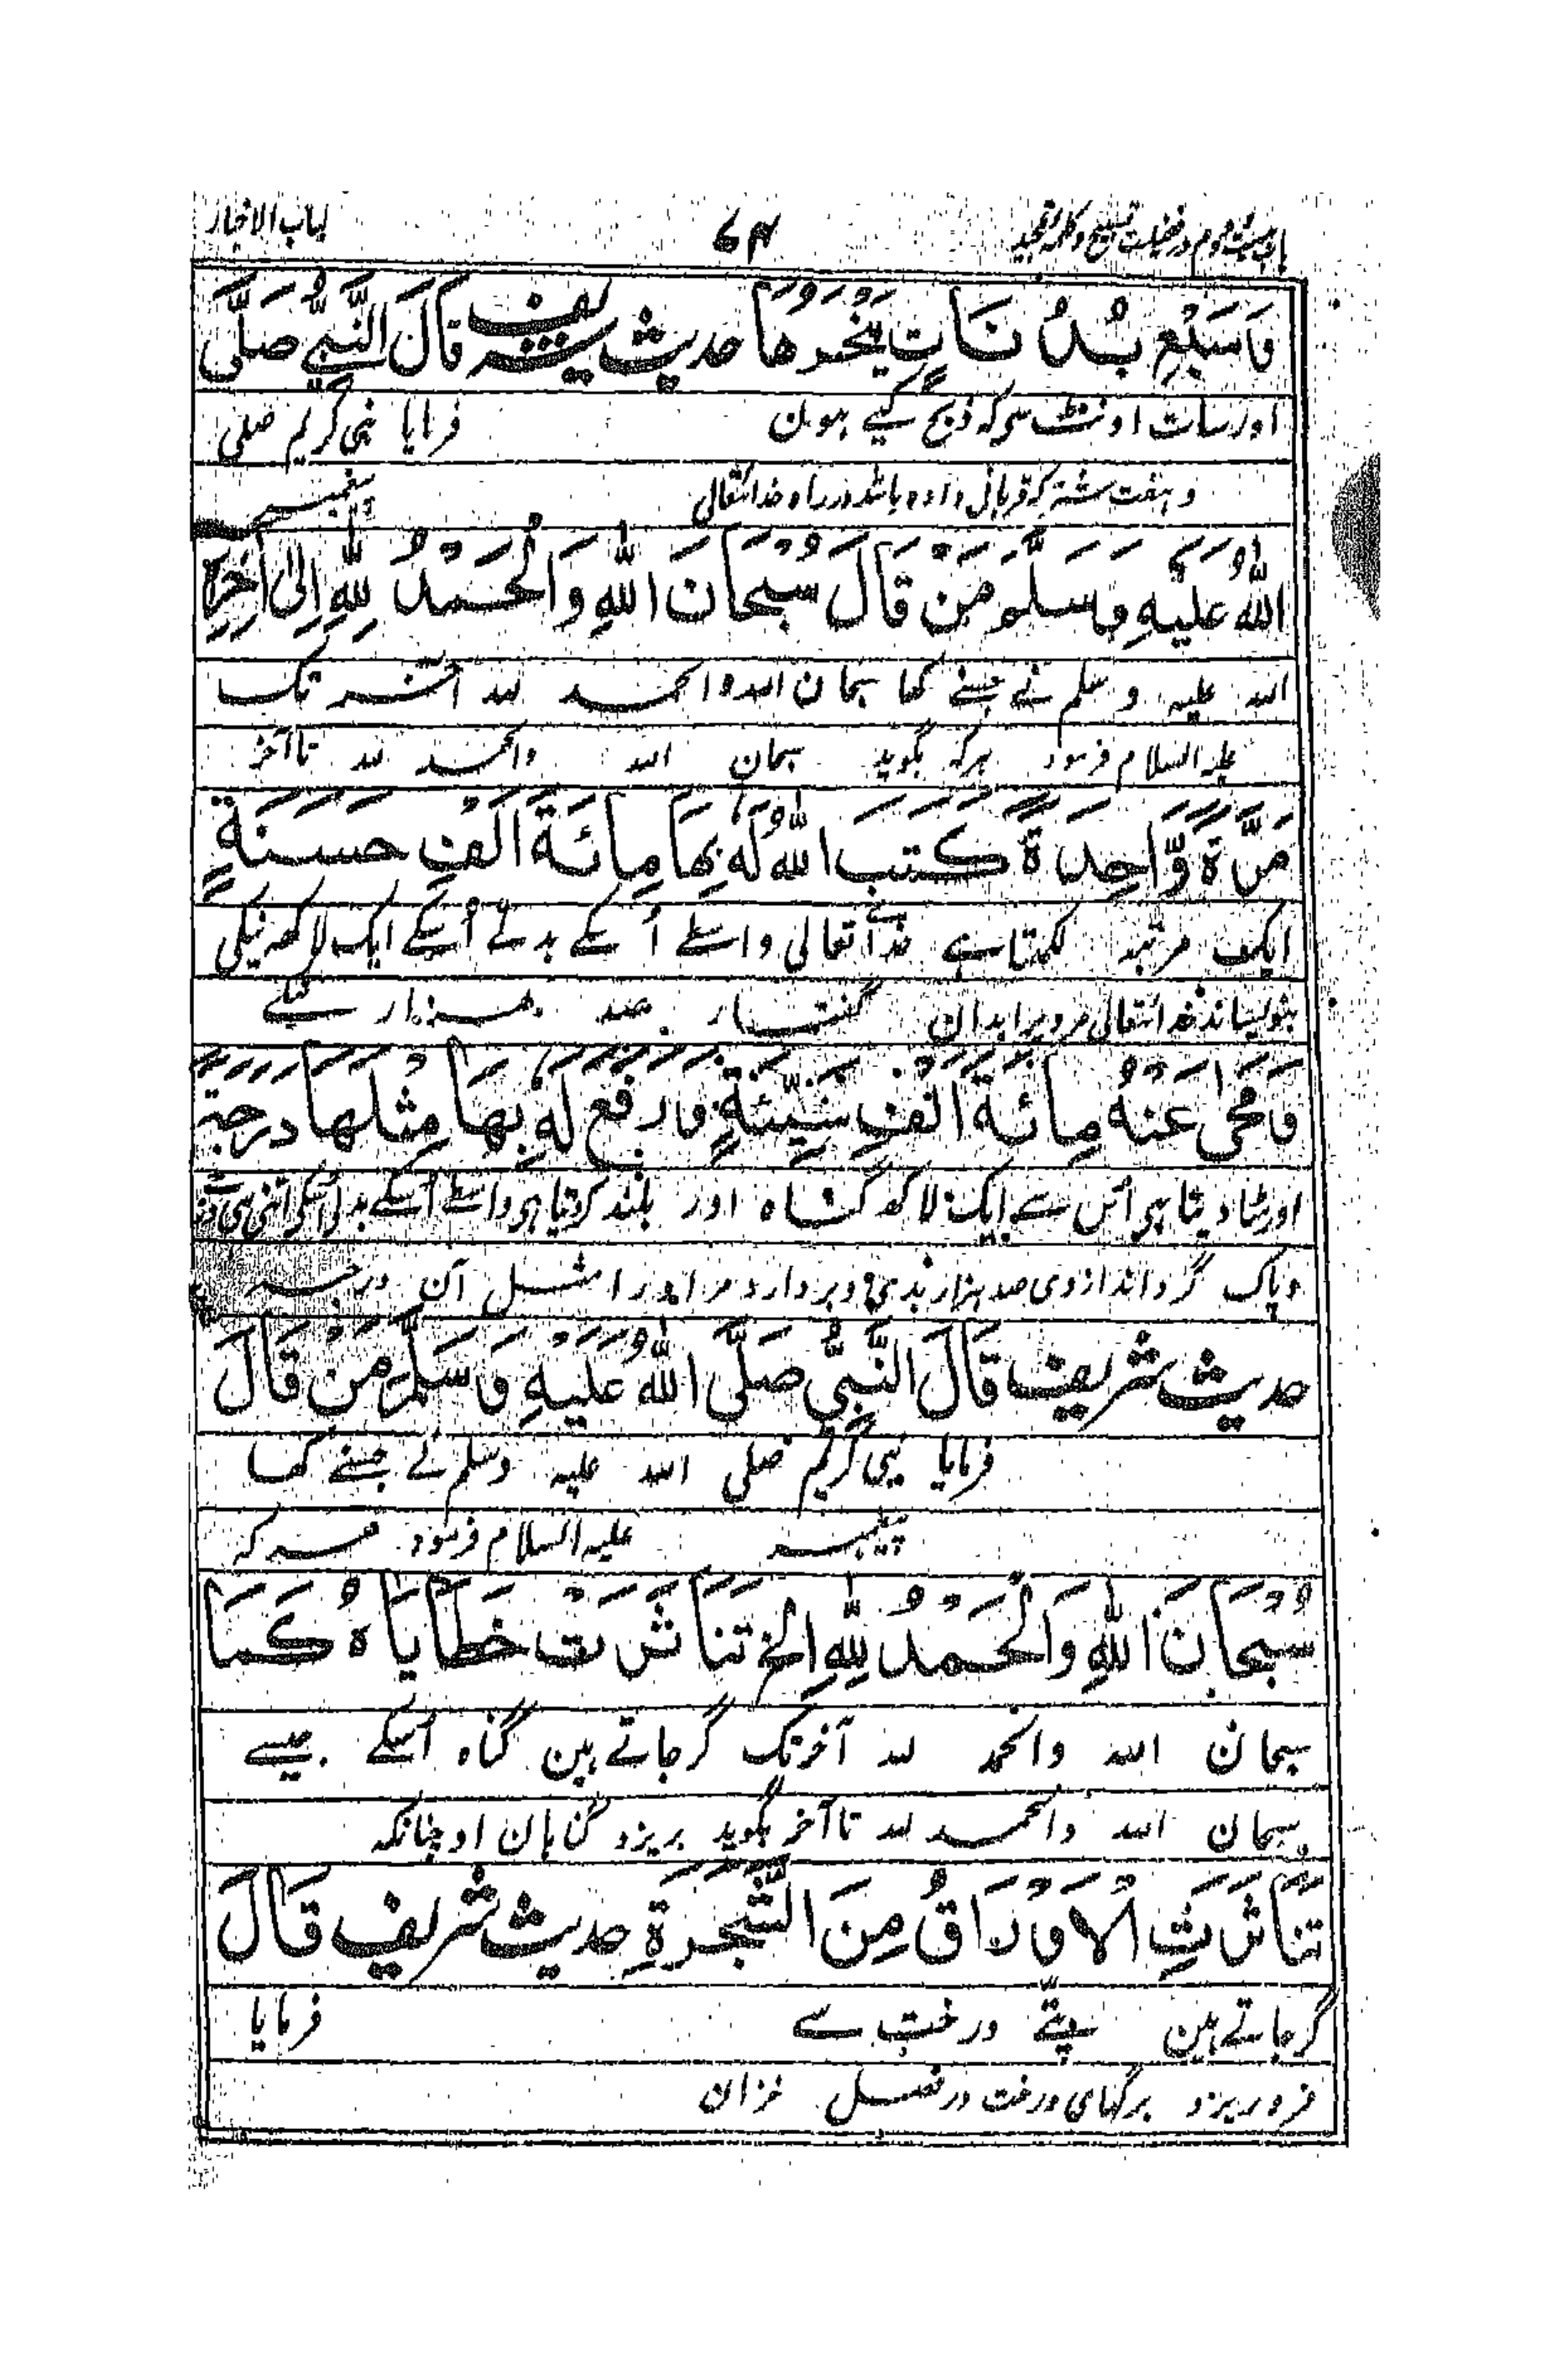 باب بست و دوم در فضیلت تسبیح و کلمہ تمجید ۶۴ لباب الاخبار
وَسَبْعِ بُدُنَاتٍ يَنْحَرُهَا حدیث شریف قَالَ النَّبِيُّ صَلَّى
اور سات اونٹ سے کہ ذبح کیے ہون فرمایا نبی کریم صلی
و ہفت شتر کہ قربانی دادہ باشد در راہ خدا تعالی پیغمبر
اللهُ عَلَيْهِ وَسَلَّمَ مَنْ قَالَ سُبْحَانَ اللهِ وَالْحَمْدُ لِلّٰهِ اِلٰى اٰخِرِهٖ
اللہ علیہ و سلم نے جسنے کہا سبحان اللہ والحمد للہ آخر تک
علیہ السلام فرمود ہر کہ بگوید سبحان اللہ والحمد للہ تا آخر
مَرَّةً وَّاحِدَةً كَتَبَ اللهُ لَهٗ بِهَا مِائَةَ اَلْفِ حَسَنَةٍ
ایک مرتبہ لکھتا ہے خدائے تعالی واسطے اُسکے بدلے اُسکے ایک لاکھ نیکی
بنویساند خدا تعالی مر ویرا بدان گفتار صد ہزار نیکے
وَمَحٰى عَنْهُ مِائَةَ اَلْفِ سَيِّئَةٍ وَرَفَعَ لَهٗ بِهَا مِثْلَهَا دَرَجَةً
اور مٹا دیتا ہی اُس سے ایک لاکھ گناہ اور بلند کر دیتا ہی واسطے اُسکے بدلے اُسکی اتنی ہی
و پاک گرداند از وی صد ہزار بدی و بردارد مر او را مثل آن درجہ
حدیث شریف قَالَ النَّبِيُّ صَلَّى اللهُ عَلَيْهِ وَسَلَّمَ مَنْ قَالَ
فرمایا نبی کریم صلی اللہ علیہ وسلم نے جسنے کہا
پیغمبر علیہ السلام فرمود ہر کہ
سُبْحَانَ اللهِ وَالْحَمْدُ لِلّٰهِ الخ تَنَاثَرَتْ خَطَايَاهُ كَمَا
سبحان اللہ والحمد للہ آخر تک گر جاتے ہین گناہ اُسکے جیسے
سبحان اللہ والحمد للہ تا آخر بگوید بریزد گناہان او چنانکہ
تَنَاثَرَتِ الْاَوْرَاقُ مِنَ الشَّجَرَةِ حدیث شریف قَالَ
گر جاتے ہین پتے درخت سے فرمایا
فرو ریزد برگہای درخت در فصل خزان